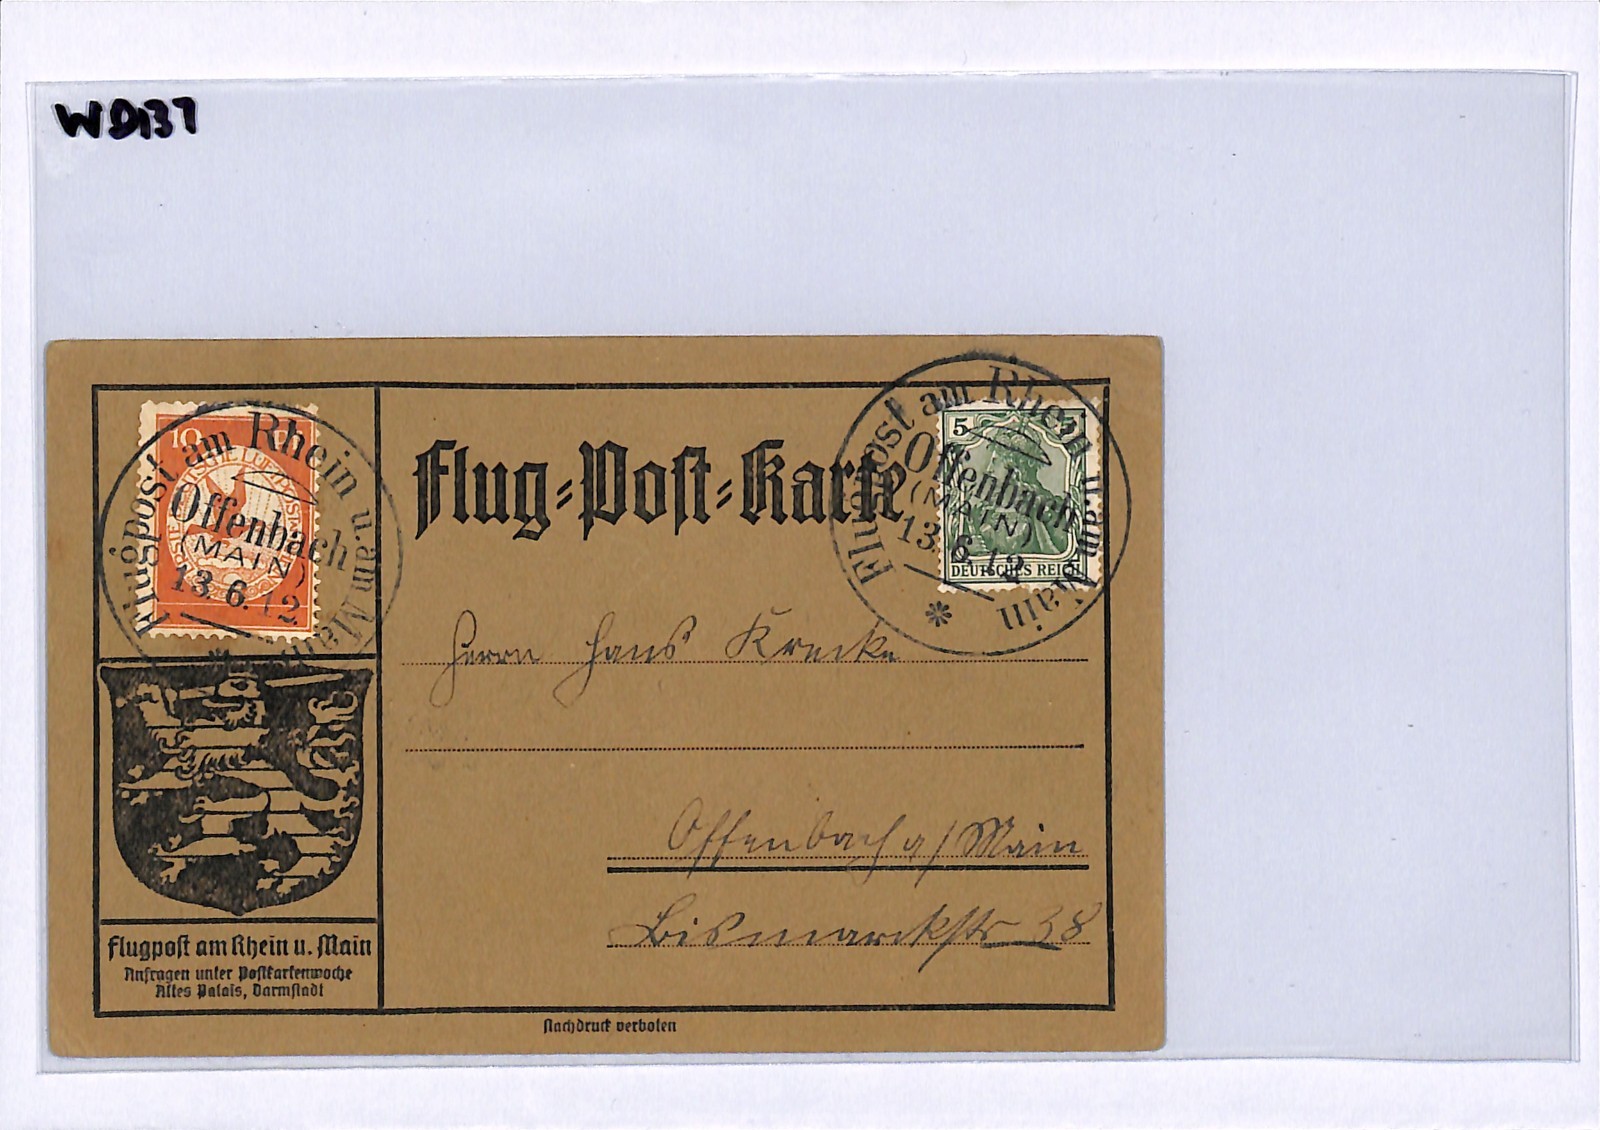 WD137
10
Flugpost am Rhein u. am Main
Offenbach
(MAIN)
13.6.12.
Flug-Post-Karte
5
DEUTSCHES REICH
Flugpost am Rhein u. am Main
Offenbach
(MAIN)
13.6.12
Herrn Hans Krecke
Offenbach a/Main
Bismarckstr 38
Flugpost am Rhein u. Main
Anfragen unter Postkartenwoche
Altes Palais, Darmstadt
Nachdruck verboten